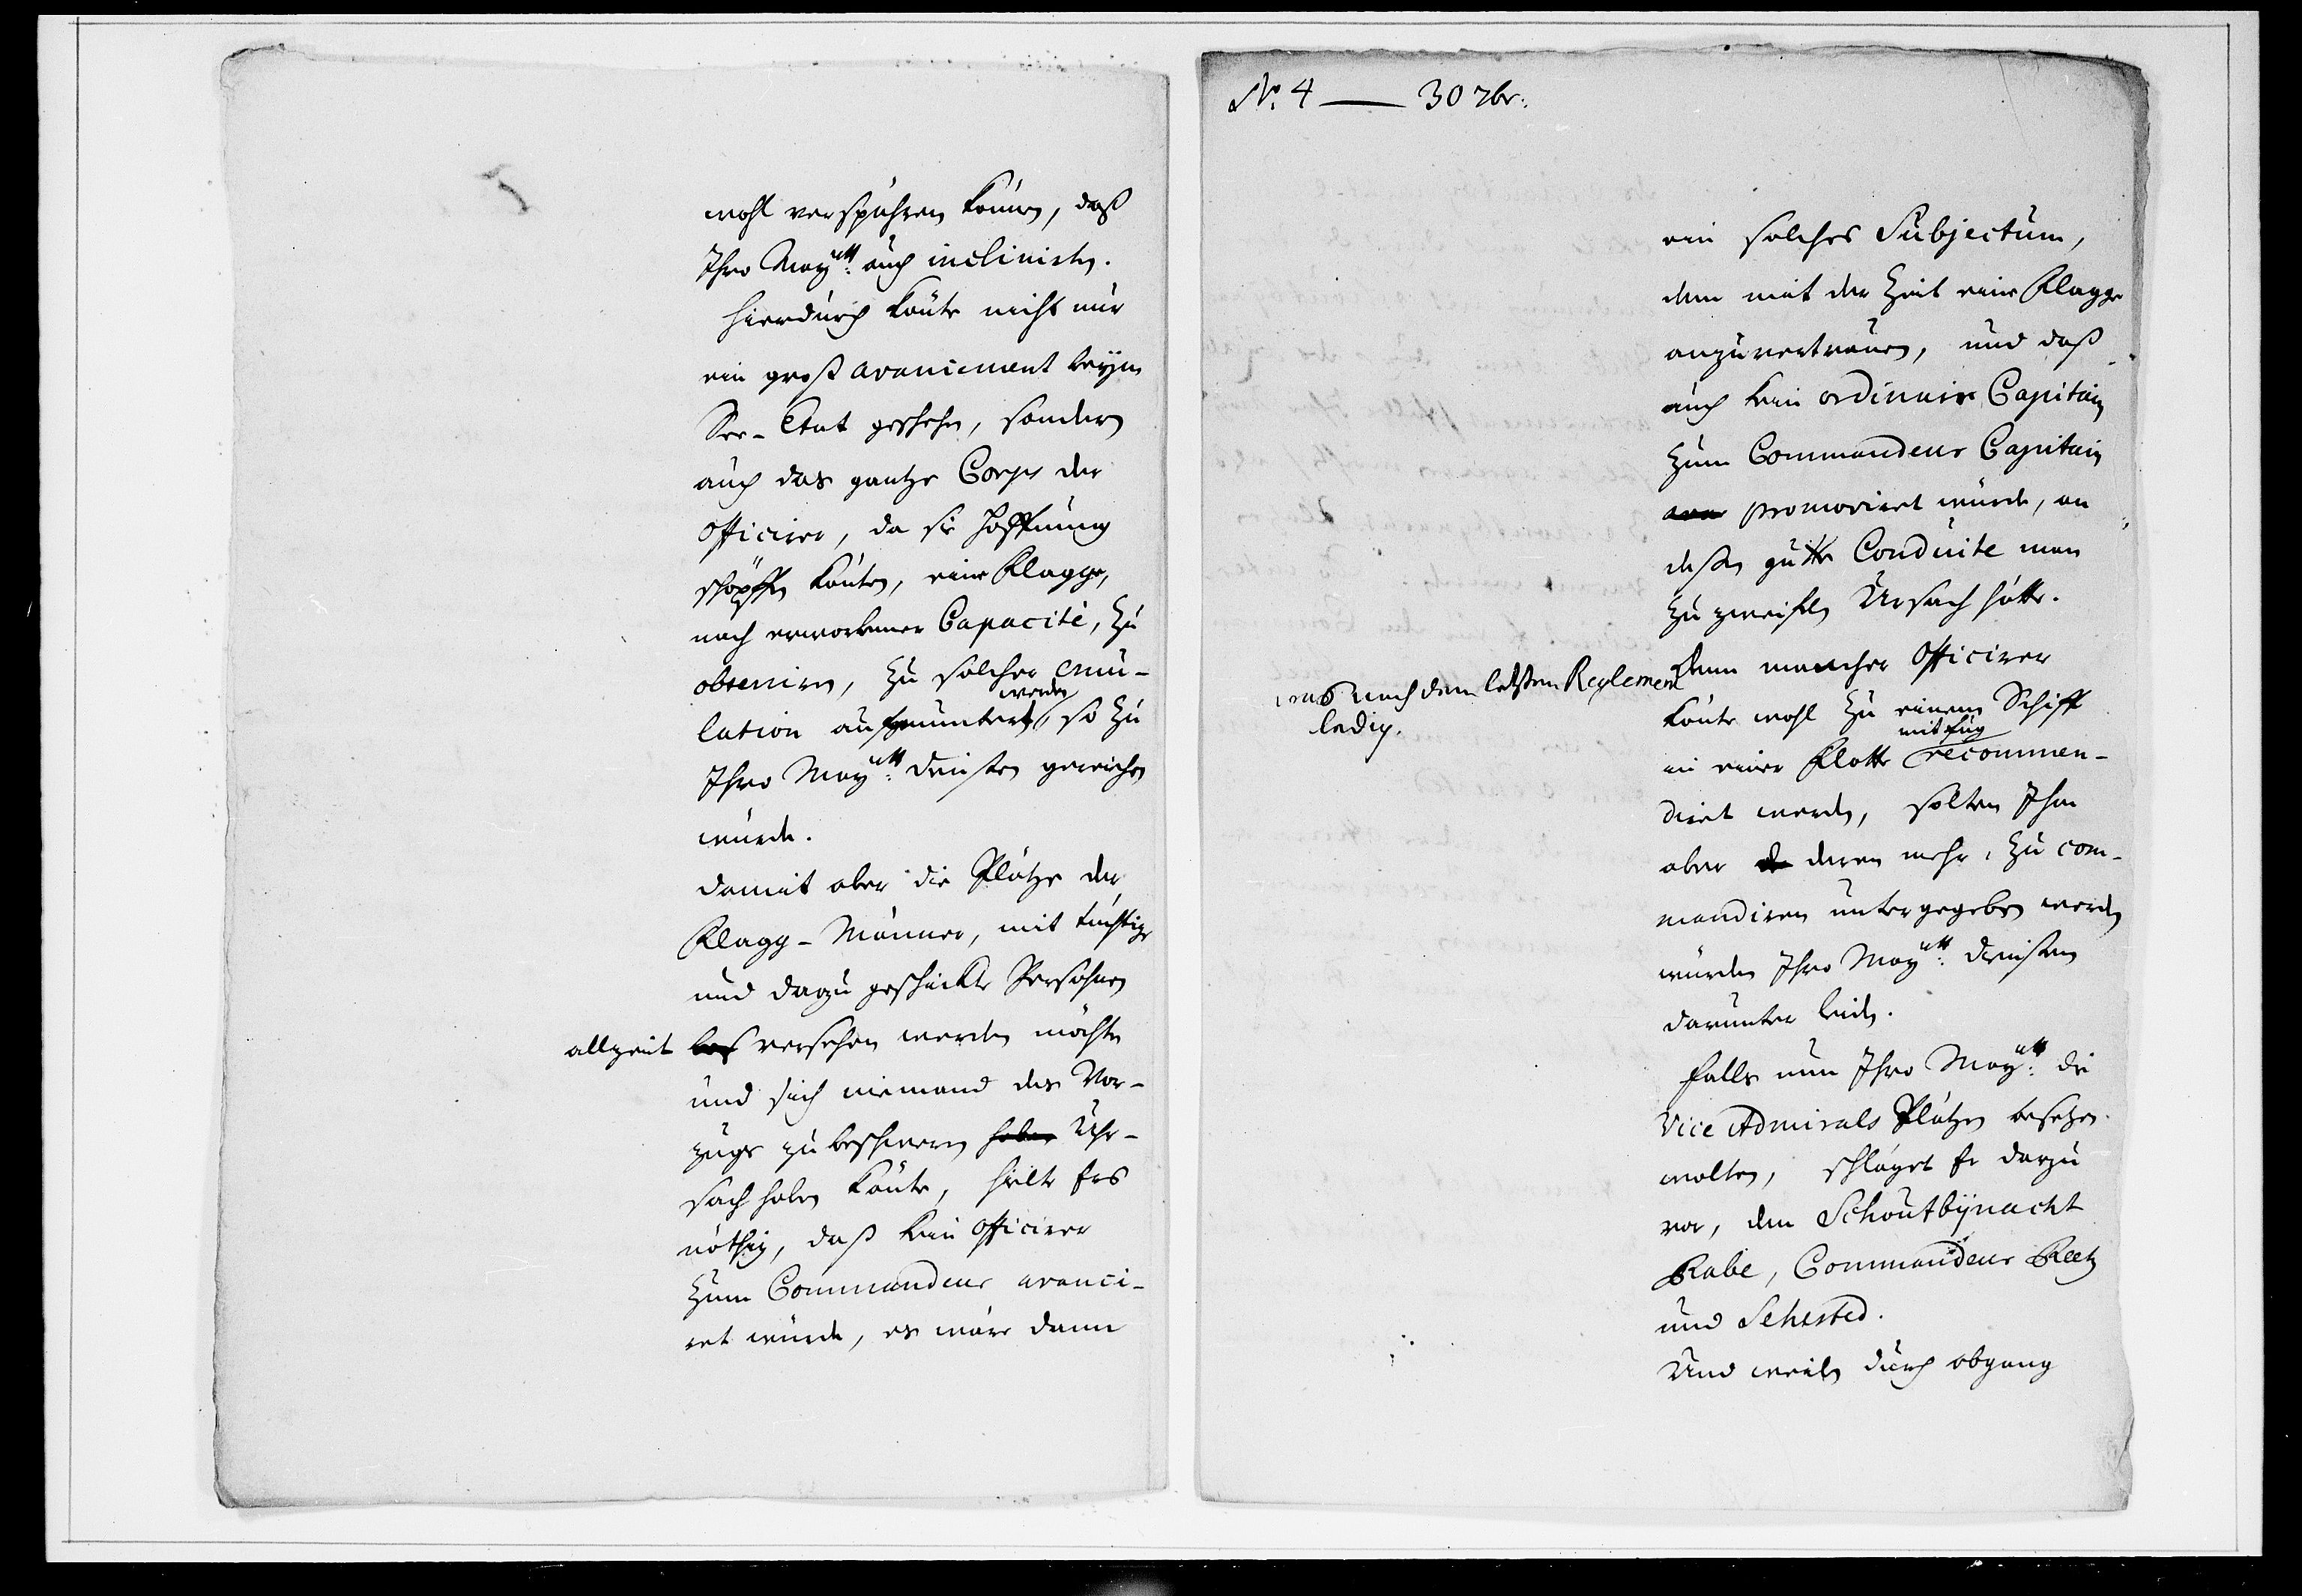 wohl verspühren können, daß
Ihro Mayᵗᵗ: auch inclinirten.
Hierdurch könte nicht nur
ein groß avancement beÿm
See-Etat geschehen, sondern
auch das gantze Corps der
Officirer, da sie Hoffnung
schöpffen könten, eine Flagge,
nach erworbener Capacité, zu
obteniren, zu solcher emu-
werden
lation aufgemuntert, so zu
Ihro Mayᵗᵗ: Diensten gereichen
würde.
Damit aber die Plätze der
Flagg-Männer, mit tüchtige
und dazu geschickte Persohnen
allzeit versehen werden möchten
und sich niemand des Vor-
zugs zu beschweren haben Uhr-
sach haben könte, hielte Er es
nöthig, daß kein Officirer
zum Commandeur avanci-
ret würde, es wäre dann
No. 4 — 30 7br:
ein solches Subjectum,
dem mit der Zeit eine Flagge
anzuvertrauen, und daß
auch kein ordinaire Capitain
zum Commandeur Capitain
promoviret würde, an
deßen gutte Conduite man
zu zweiflen Ursach hätte.
Denn mancher Officirer
was nach dem letzten Reglement
ledig.
könte wohl zu einem Schiff
mit fug
in einer Flotte recommen-
diret werden, solten Ihm
aber deren mehr, zu com-
mandiren untergegeben werden
würden Ihro Mayᵗᵗ: Diensten
darunter leiden.
Falls nun Ihro Mayᵗᵗ: die
Vice Admirals Plätze besetzen
wolten, schläget Er darzu
vor, den Schoutbÿnacht
Rabe, Commandeur Reetz
und Sehested.
Und weilen durch abgang